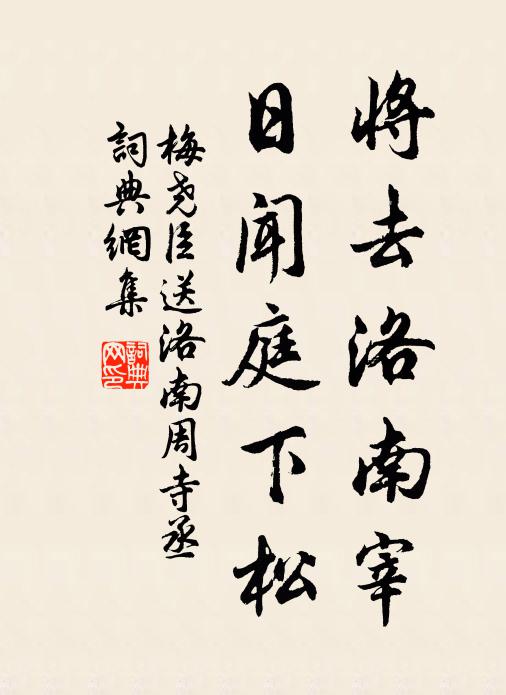 將去洛南宰
日聞庭下松
梅尧臣送洛南周寺丞
詞典網集
詞典
网印